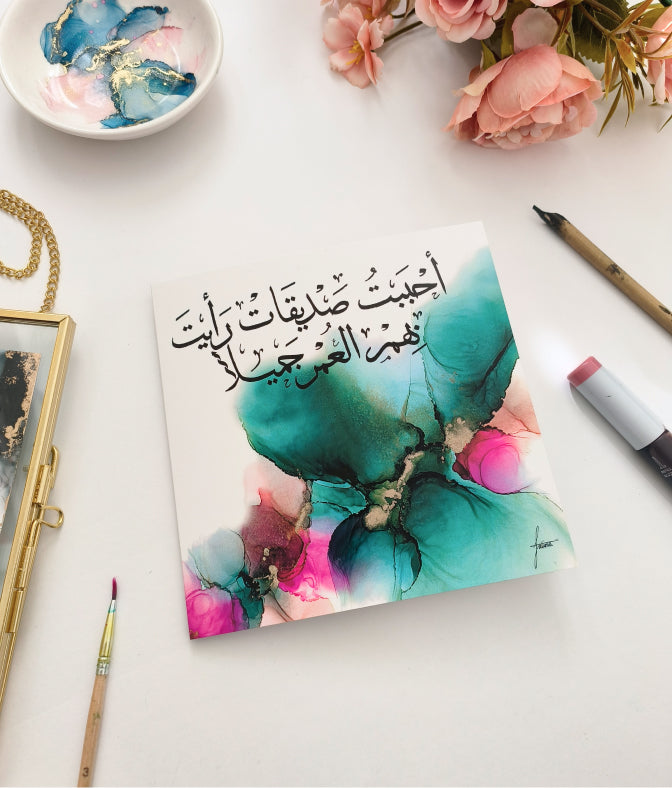 أحْبَبَتُ صَدْيقَاتْ رَأَيتَ
بِهِمْر العُمْرَ جَميلاً
3